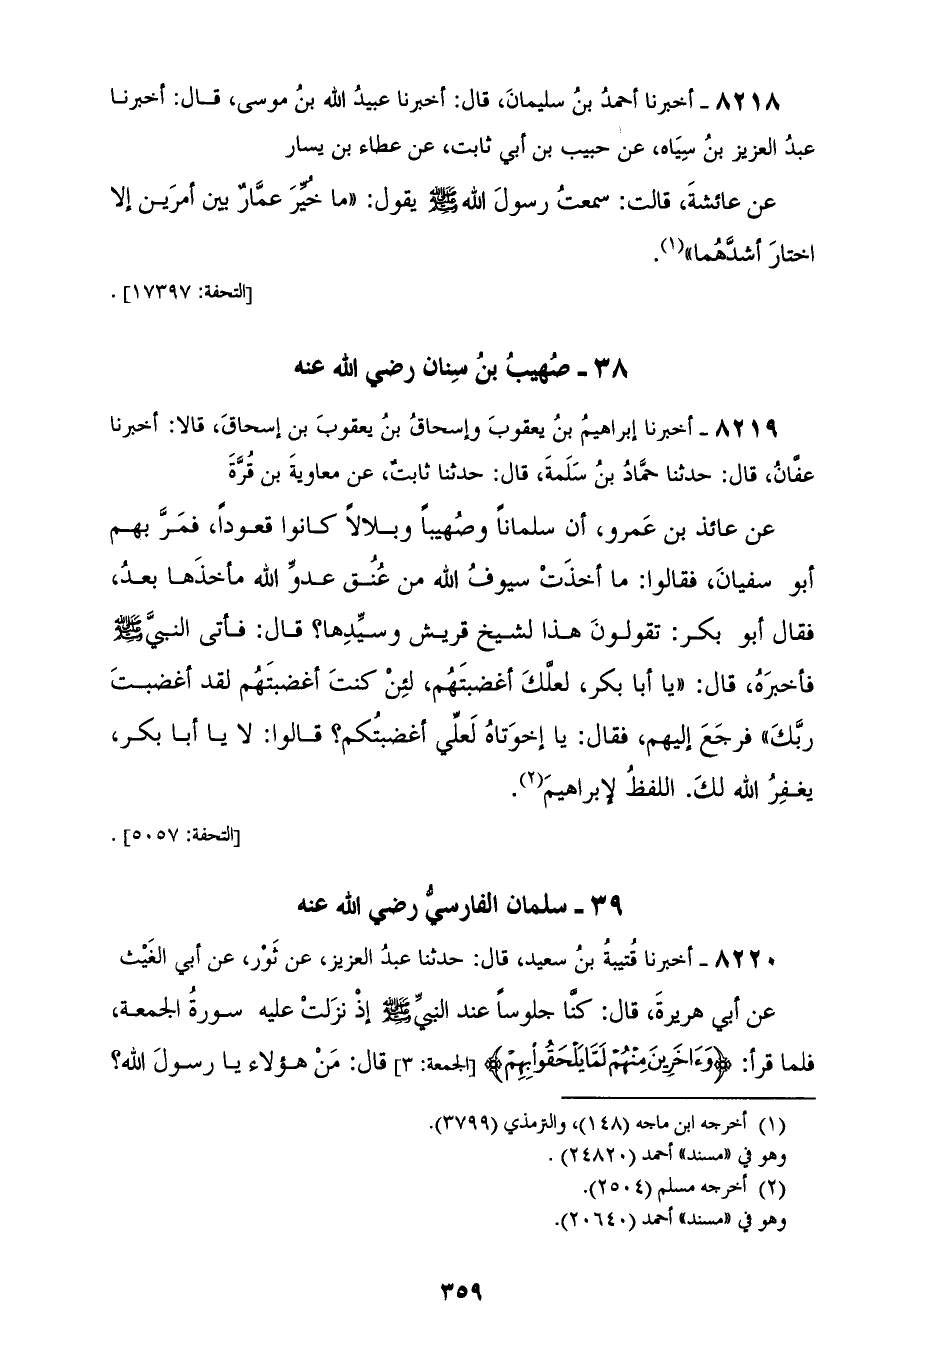 ٨٢١٨ ـ أخبرنا أحمدُ بنُ سليمانَ، قال: أخبرنا عبيدُ الله بنُ موسى، قـال: أخبرنـا
عبدُ العزيز بنُ سِيَاه، عن حبيب بن أبي ثابت، عن عطاء بن يسار
عن عائشةَ، قالت: سمعتُ رسولَ الله ﷺ يقول: «ما خُيِّرَ عمَّارٌ بين أمرَيـن إلا
اختارَ أشدَّهُما»(١).
[التحفة: ١٧٣٩٧] .
٣٨ ـ صُهيبُ بنُ سِنان رضي الله عنه
٨٢١٩ ـ أخبرنا إبراهيمُ بنُ يعقوبَ وإسحاقُ بنُ يعقوبَ بن إسحاقَ، قالا: أخبرنا
عفَّانُ، قال: حدثنا حمَّادُ بنُ سَلَمةَ، قال: حدثنا ثابتٌ، عن معاويةَ بن قُرَّةَ
عن عائذ بن عَمرو، أن سلماناً وصُهيباً وبـلالاً كـانوا قعـوداً، فمَـرَّ بهـم
أبو سفيانَ، فقالوا: ما أخذَتْ سيوفُ الله من عُنُـق عـدوِّ الله مأخذَهـا بعدُ،
فقال أبو بكـر: تقولـونَ هـذا لشيخ قريـش وسيِّدِها؟ قـال: فـأتى النبيَّ ﷺ
فأخبرَهُ، قال: «يا أبا بكر، لعلَّكَ أغضبتَهُم، لئِنْ كنتَ أغضبتَهُم لقد أغضبـتَ
ربَّكَ» فرجَعَ إليهم، فقال: يا إخوَتاهُ لَعلِّي أغضبتُكم؟ قـالوا: لا يـا أبـا بكر،
يغـفِرُ الله لكَ. اللفظُ لإبراهيمَ(٢).
[التحفة: ٥٠٥٧] .
٣٩ ـ سلمان الفارسيُّ رضي الله عنه
٨٢٢٠ ـ أخبرنا قُتيبةُ بنُ سعيد، قال: حدثنا عبدُ العزيز، عن ثَوْر، عن أبي الغَيْث
عن أبي هريرةَ، قال: كنَّا جلوساً عند النبيِّ ﷺ إذْ نزلَتْ عليه سـورةُ الجمعـة،
فلما قرأ: ﴿وَءَاخَرِينَ مِنْهُمْ لَمَّا يَلْحَقُوا۟ بِهِمْ﴾ [الجمعة: ٣] قال: مَنْ هـؤلاء يـا رسـولَ الله؟
(١) أخرجه ابن ماجه (١٤٨)، والترمذي (٣٧٩٩).
وهو في «مسند» أحمد (٢٤٨٢٠) .
(٢) أخرجه مسلم (٢٥٠٤).
وهو في «مسند» أحمد (٢٠٦٤٠).
٣٥٩